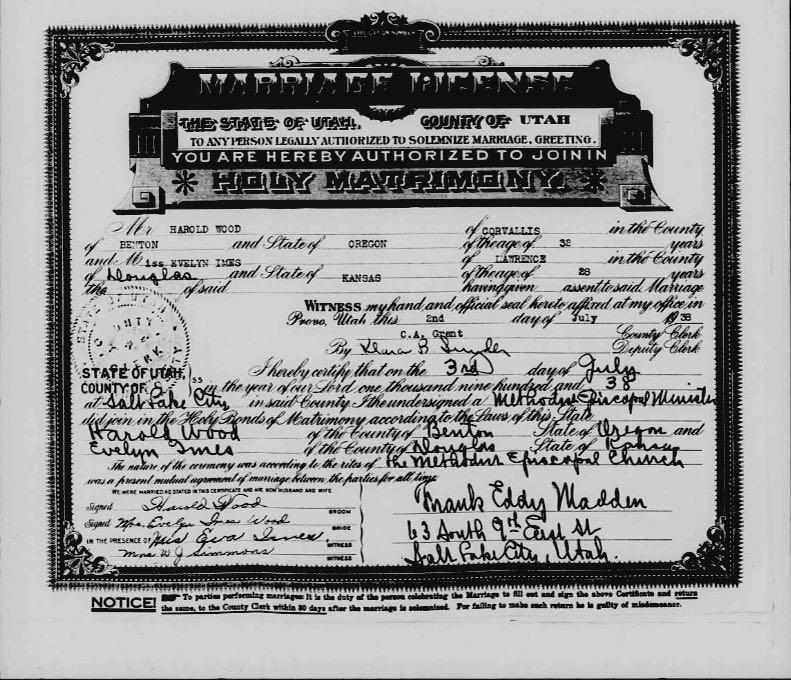 APPLICATION NUMBER
MARRIAGE LICENSE
THE STATE OF UTAH, COUNTY OF UTAH
TO ANY PERSON LEGALLY AUTHORIZED TO SOLEMNIZE MARRIAGE, GREETING.
YOU ARE HEREBY AUTHORIZED TO JOIN IN
HOLY MATRIMONY.
Mr HAROLD WOOD of CORVALLIS in the County
of BENTON and State of OREGON of the age of 32 years
and Miss EVELYN IMES of LAWRENCE in the County
of Douglas and State of KANSAS of the age of 28 years
the of said having given assent to said Marriage
WITNESS my hand and official seal hereto affixed at my office in
Provo, Utah this 2nd day of July 1938
C.A. Grant County Clerk
By Klara B. Snyder Deputy Clerk
COUNTY CLERK
STATE OF UTAH, ss
COUNTY OF
I hereby certify that on the 3rd day of July
in the year of our Lord one thousand nine hundred and 38
at Salt Lake City in said County I the undersigned a Methodist Episcopal Minister
did join in the Holy Bonds of Matrimony according to the Laws of this State
Harold Wood of the County of Benton State of Oregon and
Evelyn Imes of the County of Douglas State of Kansas
The nature of the ceremony was according to the rites of the Methodist Episcopal Church
was a present mutual agreement of marriage between the parties for all time.
WE WERE MARRIED AS STATED IN THIS CERTIFICATE AND ARE NOW HUSBAND AND WIFE
Signed Harold Wood GROOM
Signed Mrs. Evelyn Imes Wood BRIDE
IN THE PRESENCE OF Miss Eva Imes, WITNESS
Mrs W J Simmons WITNESS
Frank Eddy Madden
63 South 9th East St
Salt Lake City, Utah.
NOTICE! To parties performing marriages: It is the duty of the person celebrating the Marriage to fill out and sign the above Certificate and return
the same, to the County Clerk within 30 days after the marriage is solemnized. For failing to make such return he is guilty of misdemeanor.